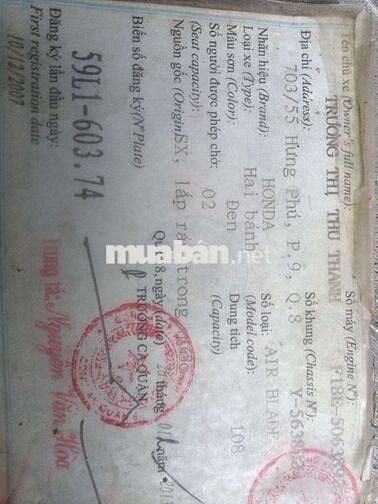 Tên chủ xe (Owner's full name):
TRƯƠNG THỊ THU THANH
Địa chỉ (Address):
703/55 Hưng Phú, P.9, Q.8
Nhãn hiệu (Brand): HONDA
Số loại: AIR BLADE
Loại xe (Type): Hai bánh
(Model code):
Màu sơn (Color): Đen
Dung tích 108
Số người được phép chở: 02
(Capacity)
(Seat capacity)
Nguồn gốc (Origin) SX, lắp ráp trong
Số máy (Engine Nº):
Số khung (Chassis Nº):
Biển số đăng ký (Nº Plate)
59L1-603.74
Quận 8, ngày (date) 20 tháng 01 năm
TRƯỞNG CA.QUẬN
Đăng ký lần đầu ngày:
First registration date
10/12/2007
Trung tá: Nguyễn Văn Hòa
muaban.net